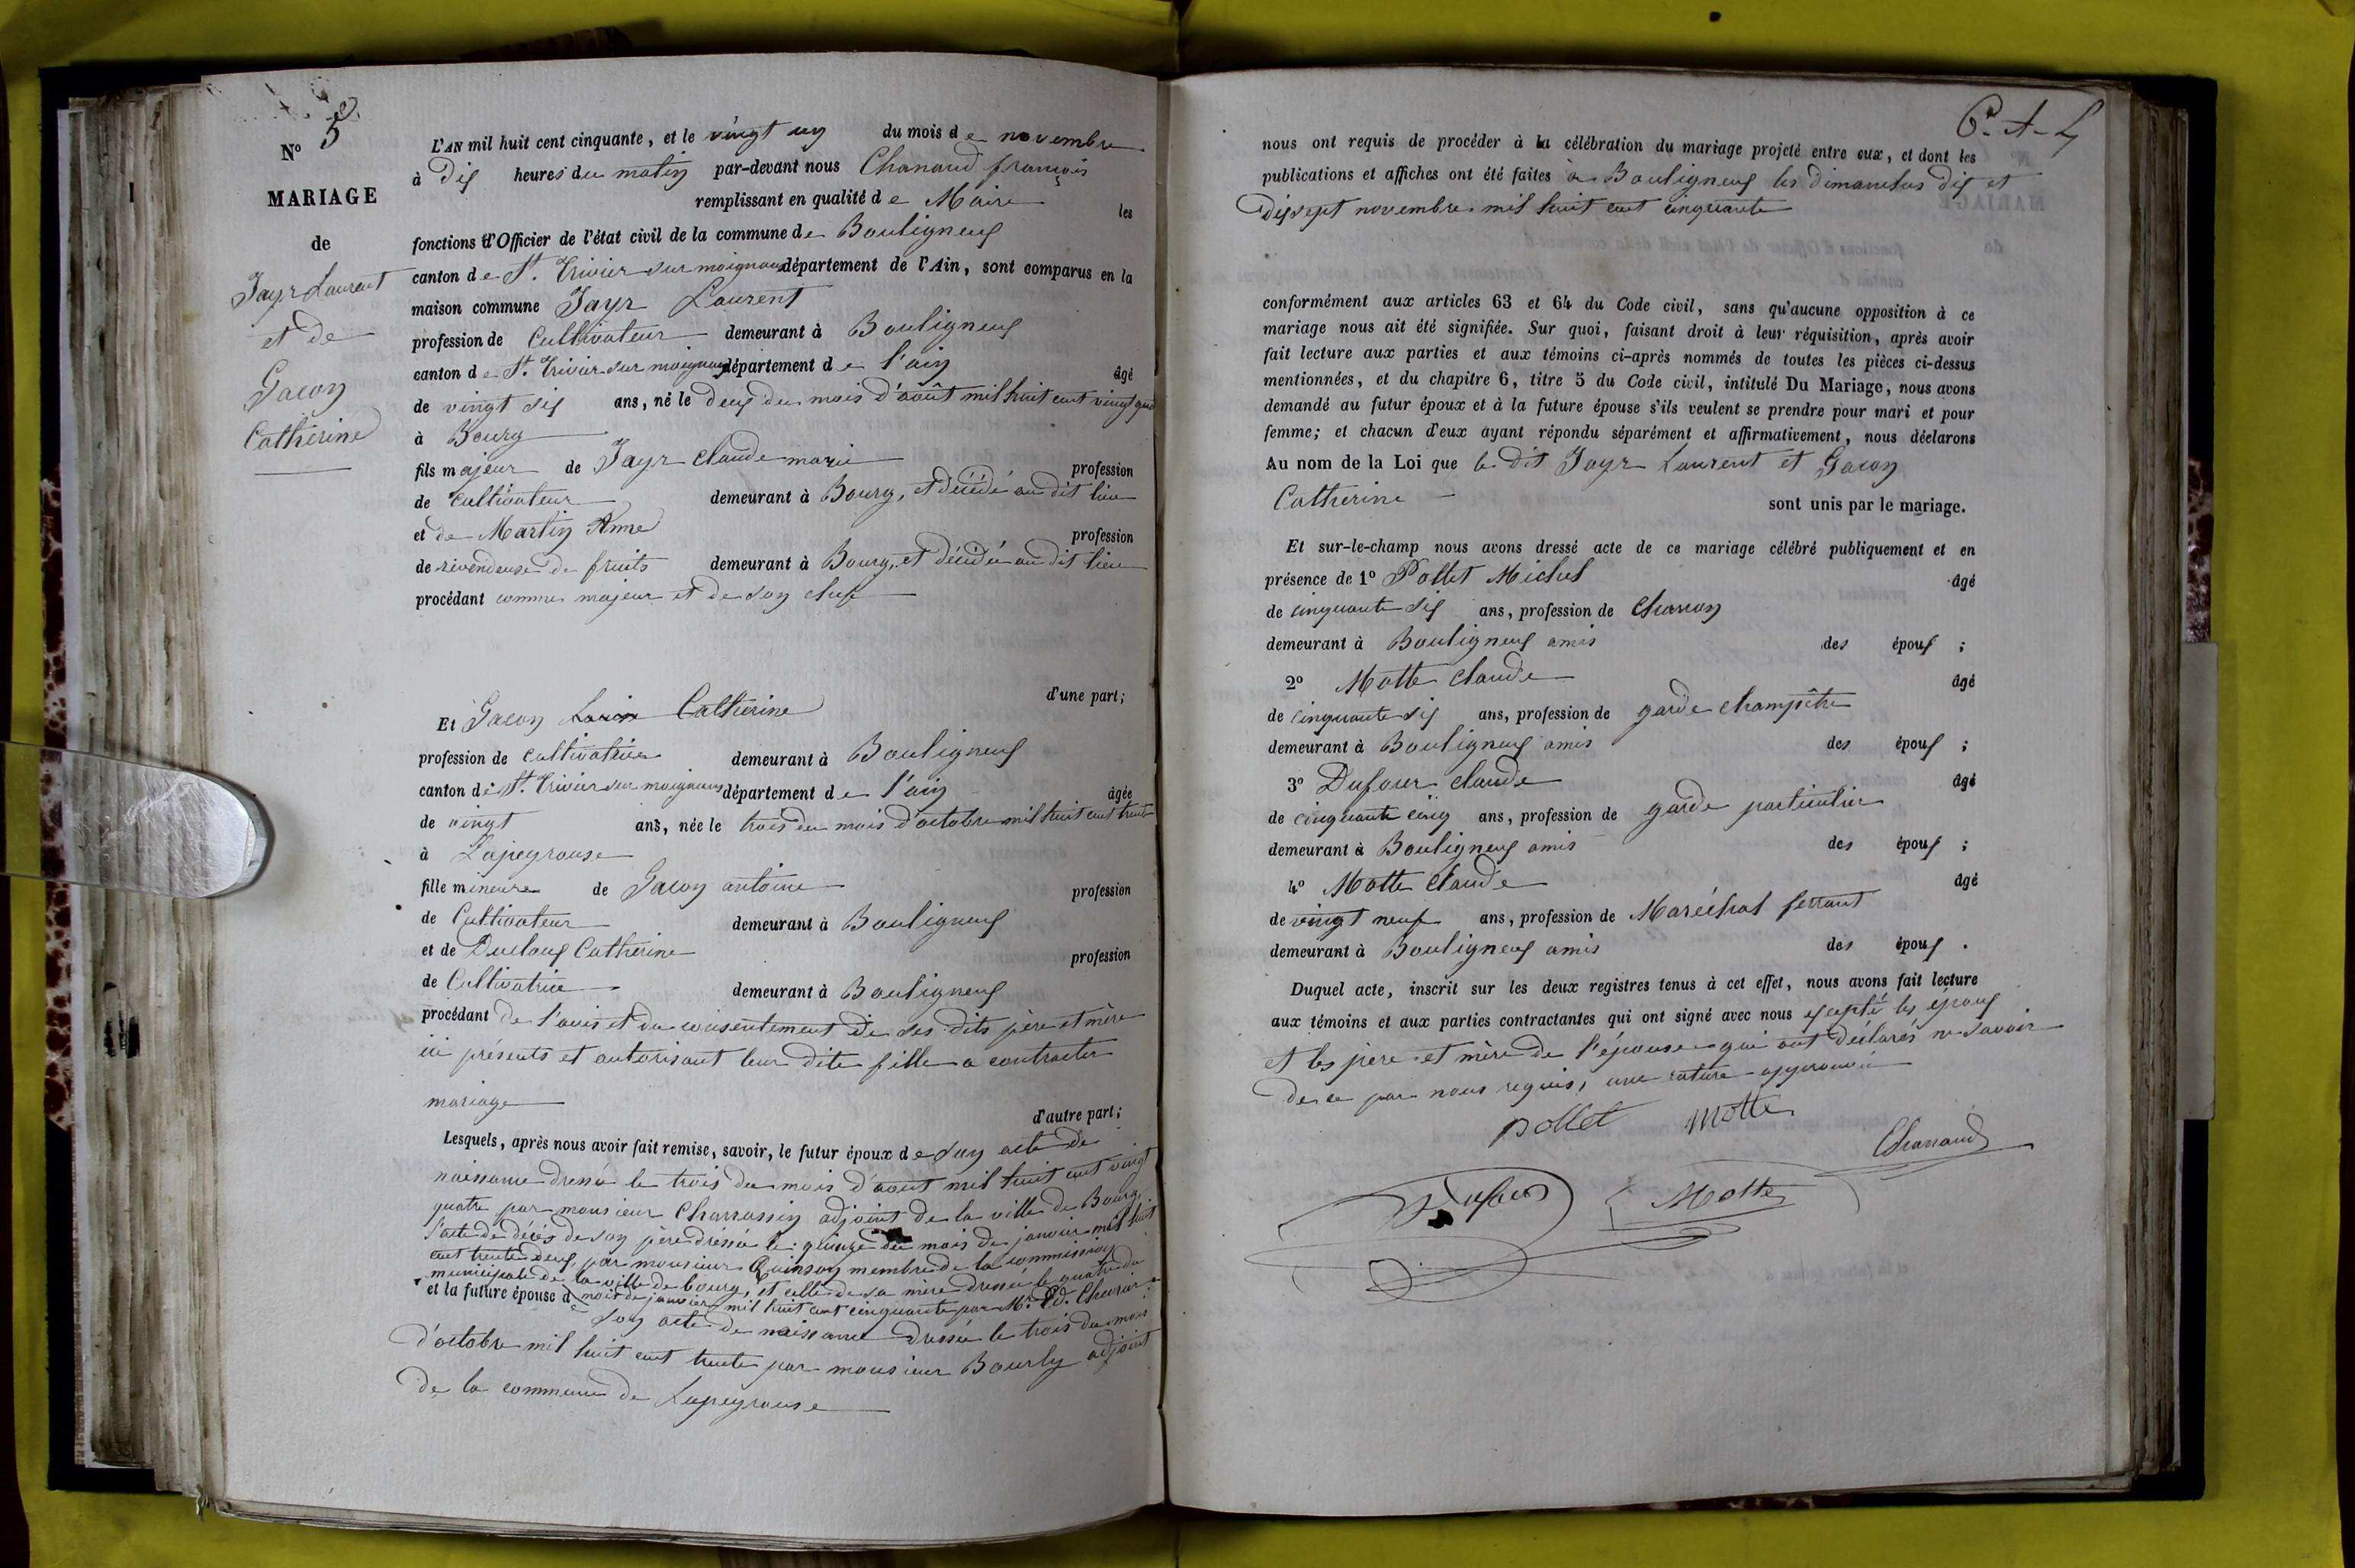 N° 5
MARIAGE
de
Jayr Laurent
et de
Gacon
Catherine
L'AN mil huit cent cinquante, et le vingt un du mois de novembre
à dix heures du matin par-devant nous Chanaud françois
remplissant en qualité de Maire les
fonctions d'Officier de l'état civil de la commune de Bouligneux
canton de St. Trivier sur moignans département de l'Ain, sont comparus en la
maison commune Jayr Laurent
profession de Cultivateur demeurant à Bouligneux
canton de St. Trivier sur moignans département de l'ain âgé
de vingt six ans, né le deux du mois d'août mil huit cent vingt
à Bourg
fils majeur de Jayr Claude marie profession
de Cultivateur demeurant à Bourg, et décédé au dit lieu
et de Martin Anne profession
de revendeuse de fruits demeurant à Bourg, et décédée au dit lieu
procédant comme majeur et de son chef
d'une part;
Et Gacon Catherine
profession de cultivatrice demeurant à Bouligneux
canton de St. Trivier sur moignans département de l'ain âgée
de vingt ans, née le trois du mois d'octobre mil huit cent trente
à Lapeyrouse
fille mineure de Gacon antoine profession
de Cultivateur demeurant à Bouligneux
et de Ducloux Catherine profession
de Cultivatrice demeurant à Bouligneux
procédant de l'avis et du consentement de ses dits père et mère
ici présents et autorisant leur dite fille a contracter
mariage
d'autre part;
Lesquels, après nous avoir fait remise, savoir, le futur époux de son acte de
naissance dressé le trois du mois d'aout mil huit cent vingt
quatre par monsieur Charrassin adjoint de la ville de Bourg,
l'acte de décès de son père dressé le quinze du mois de janvier mil huit
cent trente deux par monsieur Quinson membre de la commission
municipale de la ville de bourg, et celle de sa mère dressée le quatre du
mois de janvier mil huit cent cinquante par Mr. Ed. Chevrier
et la future épouse de son acte de naissance dressée le trois du mois
d'octobre mil huit cent trente par monsieur Bourly adjoint
de la commune de Lapeyrouse
nous ont requis de procéder à la célébration du mariage projeté entre eux, et dont les
publications et affiches ont été faites à Bouligneux les dimanches dix et
dixsept novembre mil huit cent cinquante
conformément aux articles 63 et 64 du Code civil, sans qu'aucune opposition à ce
mariage nous ait été signifiée. Sur quoi, faisant droit à leur réquisition, après avoir
fait lecture aux parties et aux témoins ci-après nommés de toutes les pièces ci-dessus
mentionnées, et du chapitre 6, titre 5 du Code civil, intitulé Du Mariage, nous avons
demandé au futur époux et à la future épouse s'ils veulent se prendre pour mari et pour
femme; et chacun d'eux ayant répondu séparément et affirmativement, nous déclarons
Au nom de la Loi que le dit Jayr Laurent et Gacon
Catherine sont unis par le mariage.
Et sur-le-champ nous avons dressé acte de ce mariage célébré publiquement et en
présence de 1° Pollet Michel âgé
de cinquante six ans, profession de Charron
demeurant à Bouligneux amis des époux ;
2° Motte Claude âgé
de cinquante six ans, profession de garde champêtre
demeurant à Bouligneux amis des époux ;
3° Dufour Claude âgé
de cinquante cinq ans, profession de garde particulier
demeurant à Bouligneux amis des époux ;
4° Motte Claude âgé
de vingt neuf ans, profession de Maréchal ferrant
demeurant à Bouligneux amis des époux .
Duquel acte, inscrit sur les deux registres tenus à cet effet, nous avons fait lecture
aux témoins et aux parties contractantes qui ont signé avec nous excepté les époux
et les père et mère de l'épouse qui ont déclarés ne savoir
de ce par nous requis, une rature approuvée
pollet motte
Chanaud
Dufour Motte